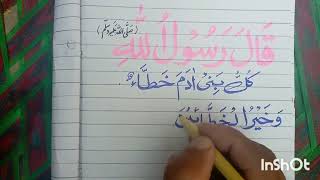 قَالَ رَسُوْلُ اللّٰهِ (صَلَّى اللهُ عَلَيْهِ وَسَلَّم)
كُلُّ بَنِىْ اٰدَمَ خَطَّاءٌ
وَخَيْرُ الْخَطَّائِيْنَ
InShOt